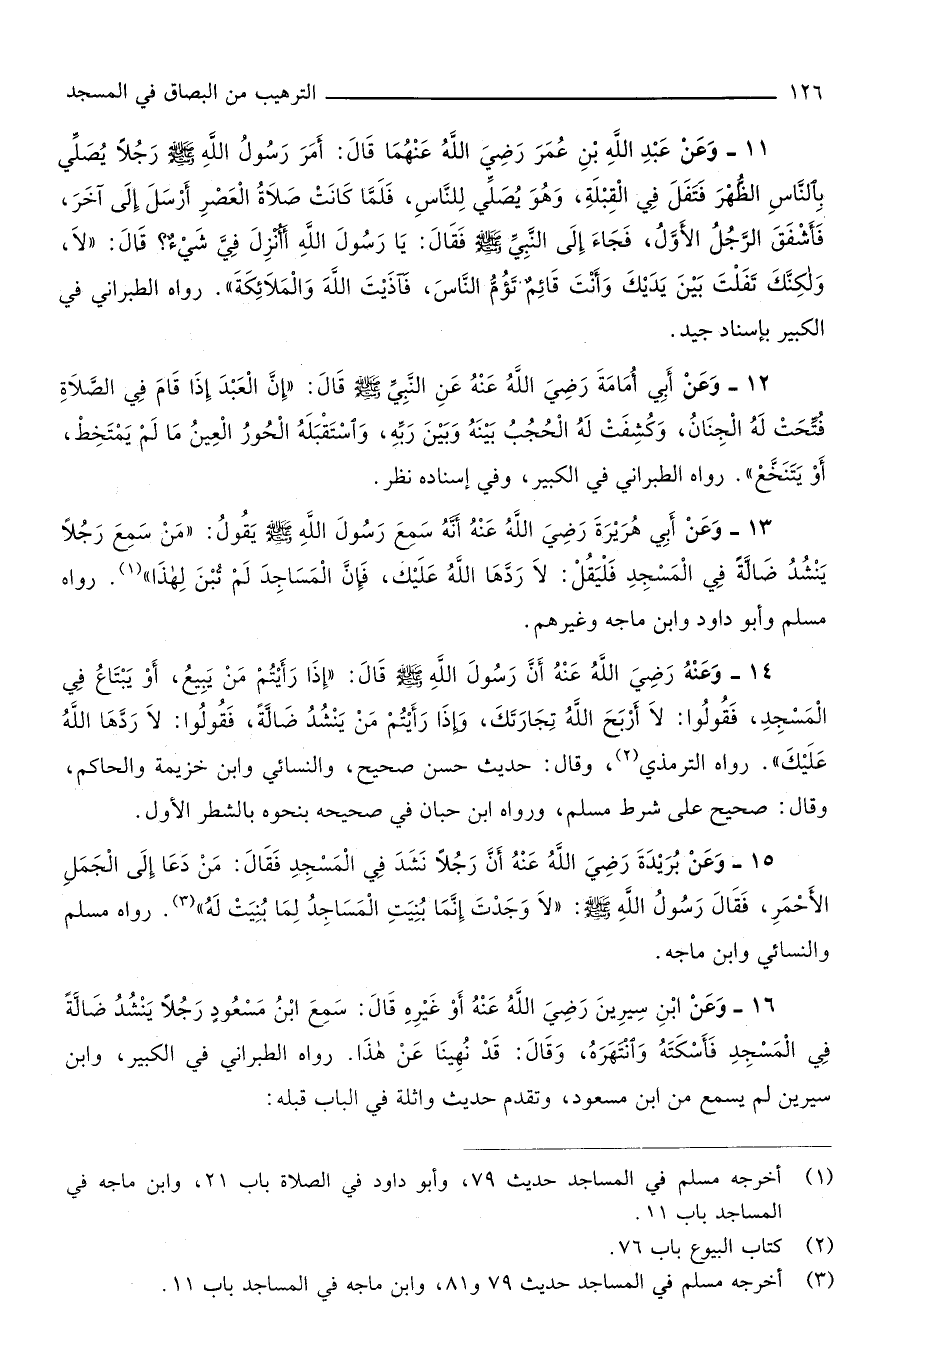 ١٢٦ ــــــــ الترهيب من البصاق في المسجد
١١ ـ وَعَنْ عَبْدِ اللَّهِ بْنِ عُمَرَ رَضِيَ اللَّهُ عَنْهُمَا قَالَ: أَمَرَ رَسُولُ اللَّهِ ﷺ رَجُلاً يُصَلِّي
بِالنَّاسِ الظُّهْرَ فَتَفَلَ فِي الْقِبْلَةِ، وَهُوَ يُصَلِّي لِلنَّاسِ، فَلَمَّا كَانَتْ صَلاَةُ الْعَصْرِ أَرْسَلَ إِلَى آخَرَ،
فَأَشْفَقَ الرَّجُلُ الأَوَّلُ، فَجَاءَ إِلَى النَّبِيِّ ﷺ فَقَالَ: يَا رَسُولَ اللَّهِ أَأُنْزِلَ فِيَّ شَيْءٌ؟ قَالَ: «لاَ،
وَلٰكِنَّكَ تَفَلْتَ بَيْنَ يَدَيْكَ وَأَنْتَ قَائِمٌ تَؤُمُّ النَّاسَ، فَآذَيْتَ اللَّهَ وَالْمَلاَئِكَةَ». رواه الطبراني في
الكبير بإسناد جيد.
١٢ ـ وَعَنْ أَبِي أُمَامَةَ رَضِيَ اللَّهُ عَنْهُ عَنِ النَّبِيِّ ﷺ قَالَ: «إِنَّ الْعَبْدَ إِذَا قَامَ فِي الصَّلاَةِ
فُتِّحَتْ لَهُ الْجِنَانُ، وَكُشِفَتْ لَهُ الْحُجُبُ بَيْنَهُ وَبَيْنَ رَبِّهِ، وَاسْتَقْبَلَهُ الْحُورُ الْعِينُ مَا لَمْ يَمْتَخِطْ،
أَوْ يَتَنَخَّعْ». رواه الطبراني في الكبير، وفي إسناده نظر.
١٣ ـ وَعَنْ أَبِي هُرَيْرَةَ رَضِيَ اللَّهُ عَنْهُ أَنَّهُ سَمِعَ رَسُولَ اللَّهِ ﷺ يَقُولُ: «مَنْ سَمِعَ رَجُلاً
يَنْشُدُ ضَالَّةً فِي الْمَسْجِدِ فَلْيَقُلْ: لاَ رَدَّهَا اللَّهُ عَلَيْكَ، فَإِنَّ الْمَسَاجِدَ لَمْ تُبْنَ لِهٰذَا»(١). رواه
مسلم وأبو داود وابن ماجه وغيرهم.
١٤ ـ وَعَنْهُ رَضِيَ اللَّهُ عَنْهُ أَنَّ رَسُولَ اللَّهِ ﷺ قَالَ: «إِذَا رَأَيْتُمْ مَنْ يَبِيعُ، أَوْ يَبْتَاعُ فِي
الْمَسْجِدِ، فَقُولُوا: لاَ أَرْبَحَ اللَّهُ تِجَارَتَكَ، وَإِذَا رَأَيْتُمْ مَنْ يَنْشُدُ ضَالَّةً، فَقُولُوا: لاَ رَدَّهَا اللَّهُ
عَلَيْكَ». رواه الترمذي(٢)، وقال: حديث حسن صحيح، والنسائي وابن خزيمة والحاكم،
وقال: صحيح على شرط مسلم، ورواه ابن حبان في صحيحه بنحوه بالشطر الأول.
١٥ ـ وَعَنْ بُرَيْدَةَ رَضِيَ اللَّهُ عَنْهُ أَنَّ رَجُلاً نَشَدَ فِي الْمَسْجِدِ فَقَالَ: مَنْ دَعَا إِلَى الْجَمَلِ
الأَحْمَرِ، فَقَالَ رَسُولُ اللَّهِ ﷺ: «لاَ وَجَدْتَ إِنَّمَا بُنِيَتِ الْمَسَاجِدُ لِمَا بُنِيَتْ لَهُ»(٣). رواه مسلم
والنسائي وابن ماجه.
١٦ ـ وَعَنْ ابْنِ سِيرِينَ رَضِيَ اللَّهُ عَنْهُ أَوْ غَيْرِهِ قَالَ: سَمِعَ ابْنُ مَسْعُودٍ رَجُلاً يَنْشُدُ ضَالَّةً
فِي الْمَسْجِدِ فَأَسْكَتَهُ وَانْتَهَرَهُ، وَقَالَ: قَدْ نُهِينَا عَنْ هٰذَا. رواه الطبراني في الكبير، وابن
سيرين لم يسمع من ابن مسعود، وتقدم حديث واثلة في الباب قبله:
(١) أخرجه مسلم في المساجد حديث ٧٩، وأبو داود في الصلاة باب ٢١، وابن ماجه في
المساجد باب ١١.
(٢) كتاب البيوع باب ٧٦.
(٣) أخرجه مسلم في المساجد حديث ٧٩ و٨١، وابن ماجه في المساجد باب ١١.